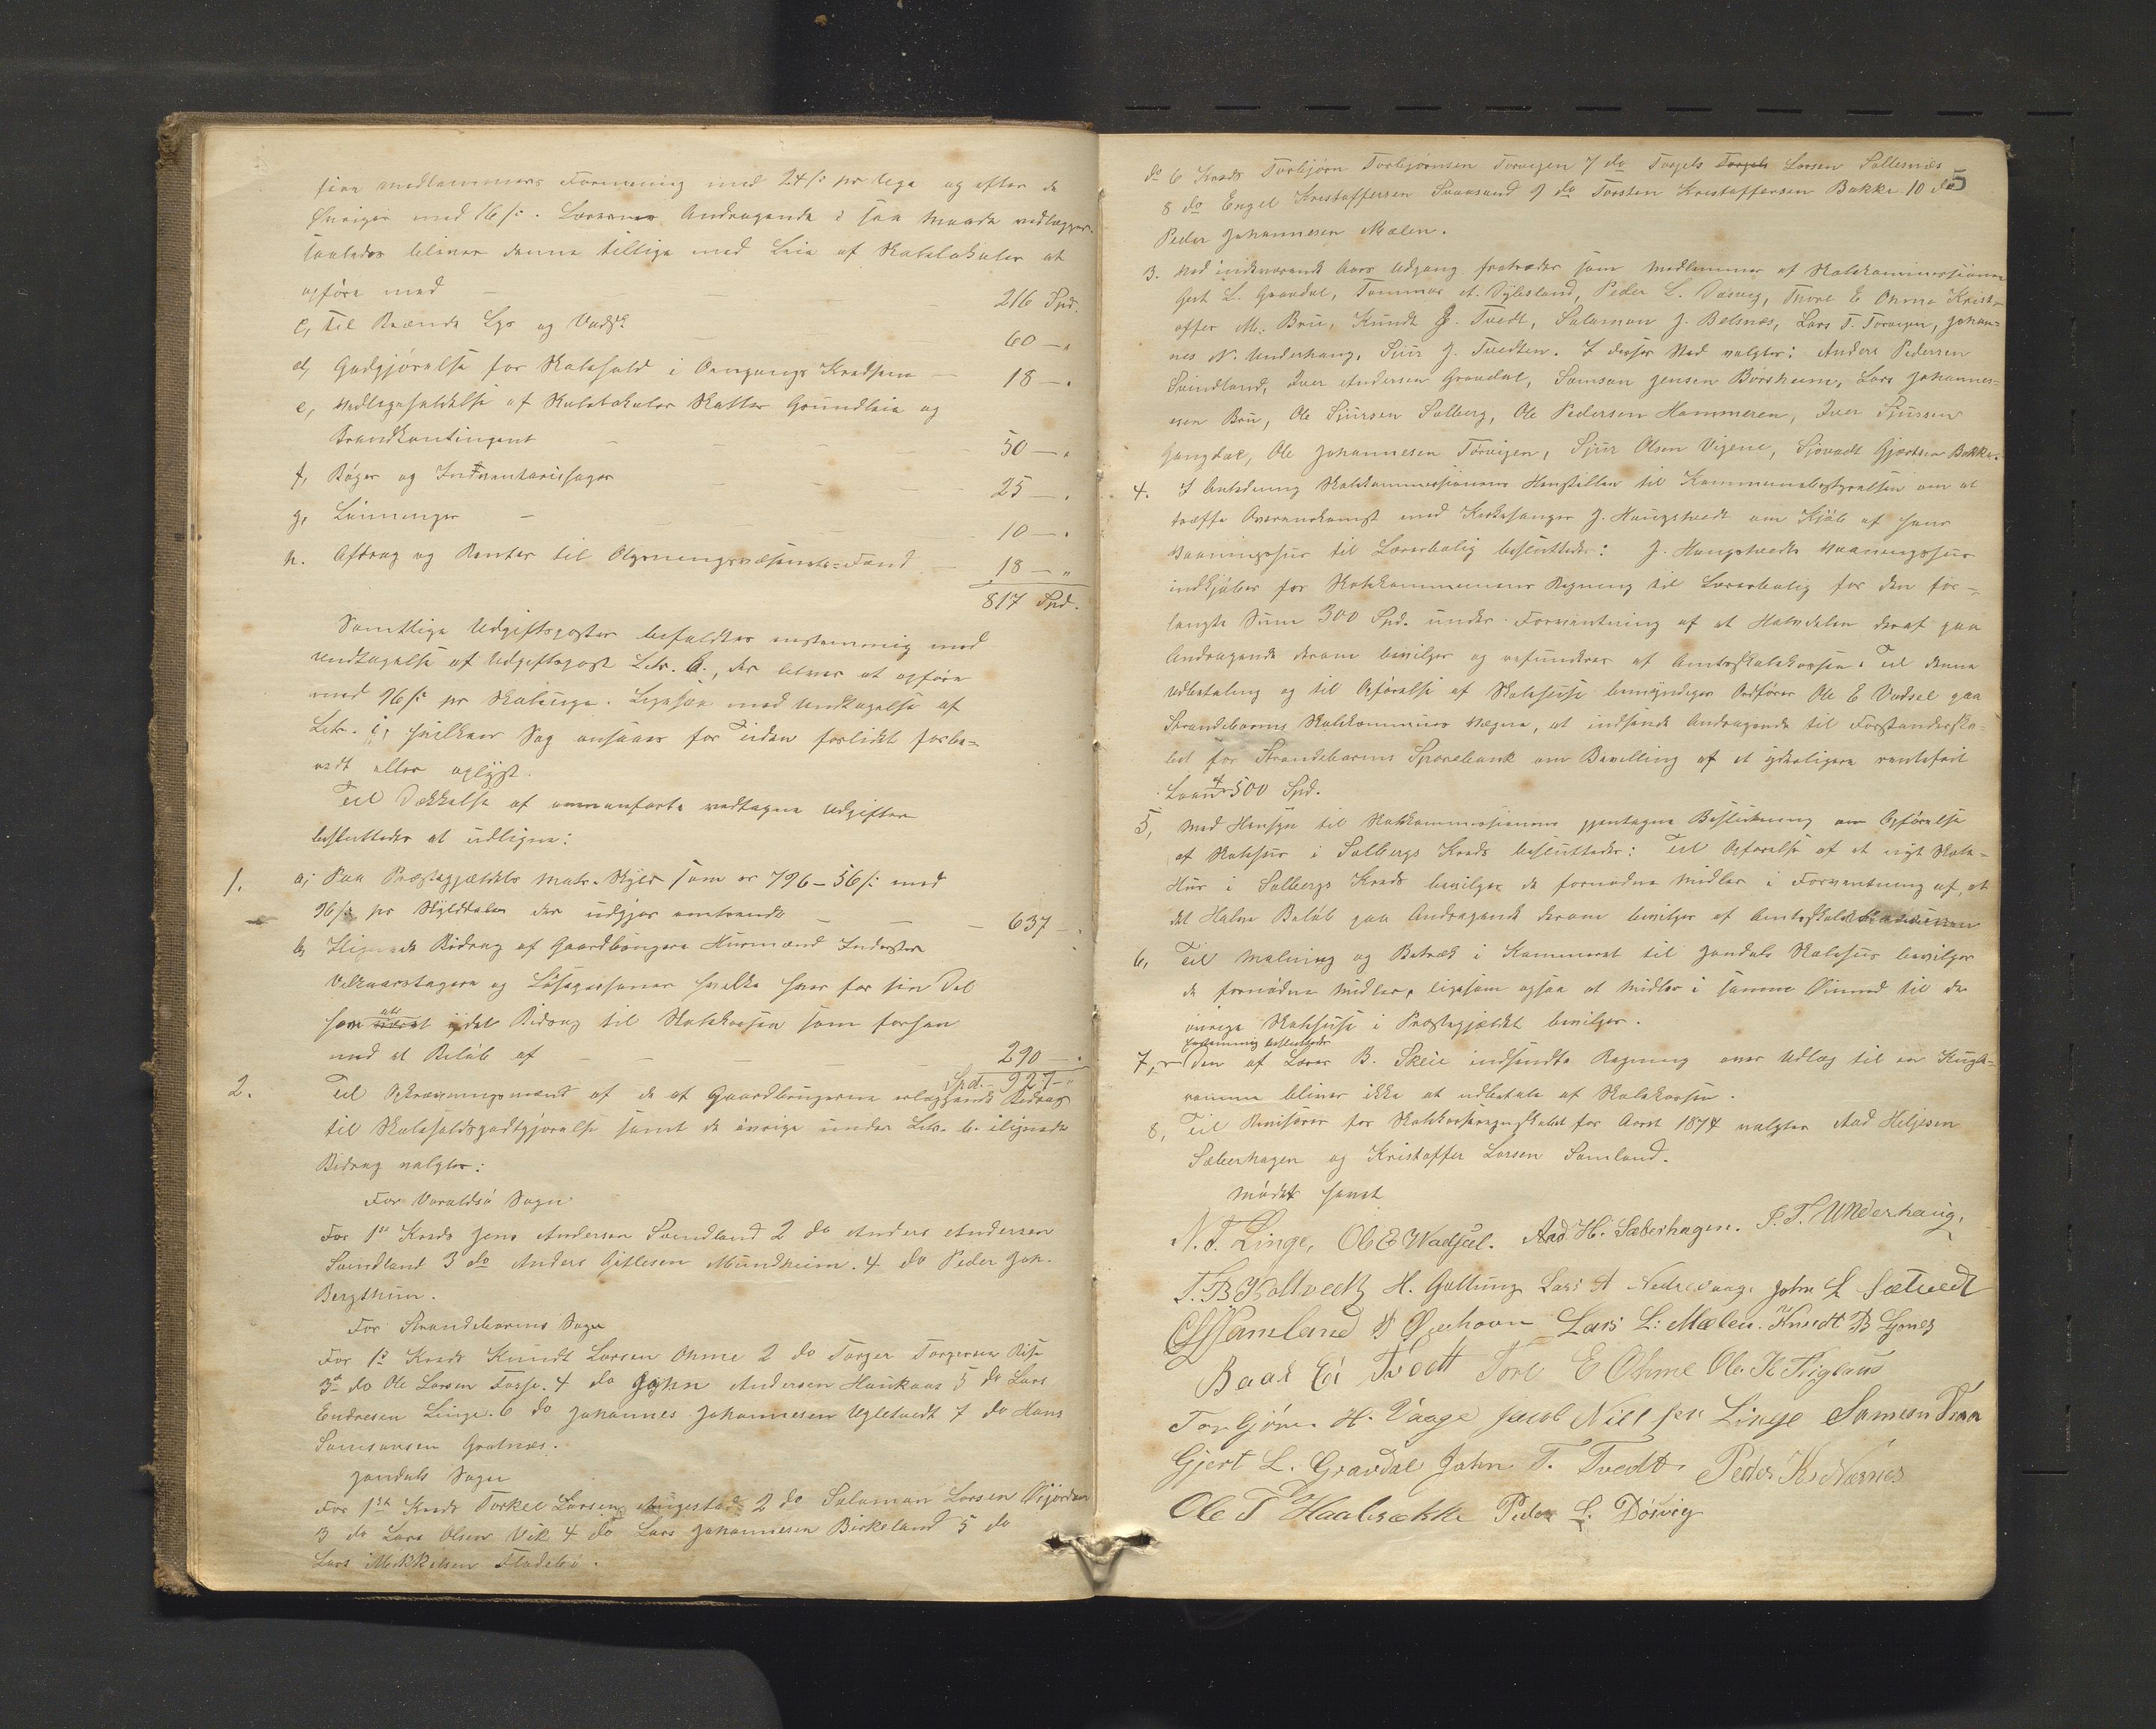 fire medlemmers Formening med 24 s: pr Uge og efter de
Øvriges med 16 s:. Lærernes Andragende i saa Maade vedlægges.
saaledes bliver denne tillige med Leie af Skolelokaler at
opføre med 216 Spd.
c, Til Brænde Lys og Vadsk 60 — "
d, Godgjørelse for Skolehold i Omgangs Kredsene — 18 — "
e, Vedligeholdelse af Skolelokaler Skatter Grundleie og
Brandkontingent 50 — "
f, Bøger og Inventariesager 25 — "
g, Lønninger 10 — "
h. Afdrag og Renter til Oplysningsvæsenets=Fond 18 — "
817 Spd.
Samtlige Udgiftsposter befaldtes enstemmig med
Undtagelse af Udgiftspost Litr. b., der bliver at opføre
med 96 s: pr Skoleuge. Ligesaa med Undtagelse af
Litr. i, hvilken Sag ansaaes for Tiden forlidet forbe=
redt eller oplyst.
Til Dækkelse af ovenanførte vedtagne Udgifter
besluttedes at udligne:
1. a; Paa Præstegjældets Matr. Skyld som er 796-56 s: med
96 s: pr Skylddaler der udgjør omtrendt 637 —
b, Lignede Bidrag af Gaardbrugere Husmænd Inderster
Vilkaarstagere og Løsepersoner hvilke hver for sin Del
som ydet Bidrag til Skolekassen som forhen
med et Beløb af 290 — "
Spd. 927 — "
2. Til Opkrævningsmænd af de af Gaardbrugerne erlæggende Bidrag
til Skoleholdsgodtgjørelse samt de øvrige under Litr. b. ilignede
Bidrag valgtes:
For Varaldsø Sogn
For 1ste Kreds Jens Andersen Svindland 2 do Anders Andersen
Svindland 3 do Anders Gitlesen Mundheim. 4 do Peder Joh.
Bergthun.
For Strandebarms Sogn
For 1ste Kreds Knudt Larsen Ohme 2 do Torger Torgersen Rise
3 do Ole Larsen Fosse. 4 do John Andersen Haukaas 5 do Lars
Endresen Linge. 6 do Johannes Johannesen Ugletvedt 7 do Hans
Samsonsen Grotnæs.
Jondals Sogn
For 1ste Kreds Torkel Larsen Augestad 2 do Salamon Larsen
3 do Lars Olsen Vik 4 do Lars Johannesen Birkeland 5 do
Lars Mikkelsen Fladebø.
5
do 6 Kreds Torbjørn Torbjørnsen Torvigen 7 do Torgels Torgels Larsen Sollesnæs
8 do Engel Kristoffersen Svaasand 9 do Torsten Kristoffersen Bakke 10 do
Peder Johannesen Mælen.
3. Ved indeværende Aars Udgang fratræder som Medlemmer af Skolekommissionen
Gert L. Gravdal, Tommas A. , Peder L. Døsvig, Thore E Ohme Krist=
offer M. Bru, Knudt J. Tvedt, Salamon J. Belsnæs, Lars T. Torvigen, Johan=
nes N. Underhaug, Siur J. Tvedten. I deres Sted valgtes: Anders Pedersen
Svindland, Iver Andersen Gravdal, Samson Jensen Børsheim, Lars Johannes=
esen Bru, Ole Sjursen Solberg, Ole Pedersen Hammeren, Iver Sjursen
Gangdal, Ole Johannesen Tørvigen, Sjur Olsen Vigene, Sjovadt Gjertsen Bakke.
4. I Anledning Skolekommissionens Henstillen til Kommunebestyrelsen om at
træffe Overenskomst med Kirkesanger J. Haugstvedt om Kjøb af hans
Vaaningshus til Lærerbolig besluttedes: J. Haugstvedts Vaaningshus
indkjøbes for Skolekommunens Regning til Lærerbolig for den for=
langte Sum 300 Spd. under Forventning af at Halvdelen deraf paa
Andragende derom bevilges og refunderes af Amtsskolekassen. Til denne
Udbetaling og til Opførelse af Skolehuse bemyndiges Ordfører Ole E Vadsel paa
Strandebarms Skolekommunes Vegne, at indsende Andragende til Forstanderska=
bet for Strandebarms Sparebank om Bevilling af et yderligere rentefrit
Laan 500 Spd.
5, Med Hensyn til Skolekommissionens gjentagne Beslutning om Opførelse
af Skolehus i Solbergs Kreds besluttedes: Til Opførelse af et nyt Skole=
Hus i Solbergs Kreds bevilges de fornødne Midler i Forventning af, at
det Halve Beløb paa Andragende derom bevilges af Amtsskolekassen
6, Til Malning og Betræk i Kammeret til Jondals Skolehus bevilges
de fornødne Midler, ligesom ogsaa at Midler i samme Øiemed til de
øvrige Skolehuse i Præstegjældet bevilges.
Enstemmig besluttedes
7, Den af Lærer B. Skeie indsendte Regning over Udlæg til en Kugle=
ramme bliver ikke at udbetale af Skolekassen.
8, Til Revisorer for Skolekasseregnskabet for Aaret 1874 valgtes Aad Heljesen
Sæterhagen og Kristoffer Larsen Samland.
Mødet hævet
N. T. Linge, Ole E Wadsel. Aad H. Sæterhagen. J. T. Underhaug.
T. B. Holtvedt H. Gallung Lars A Nedrevaage John S. Sætvedt
Samland Lars L: Mælen. Knudt B Lynes
Baar Ei Tvedt Tore E Ohme Ole K
Torbjørn H. Vaage Jacob Nilssen Linge Samson
Gjert L. Gravdal John T. Tvedt Peder Ks Nærnes
Ole T Haabrække Peder L. Døsvig